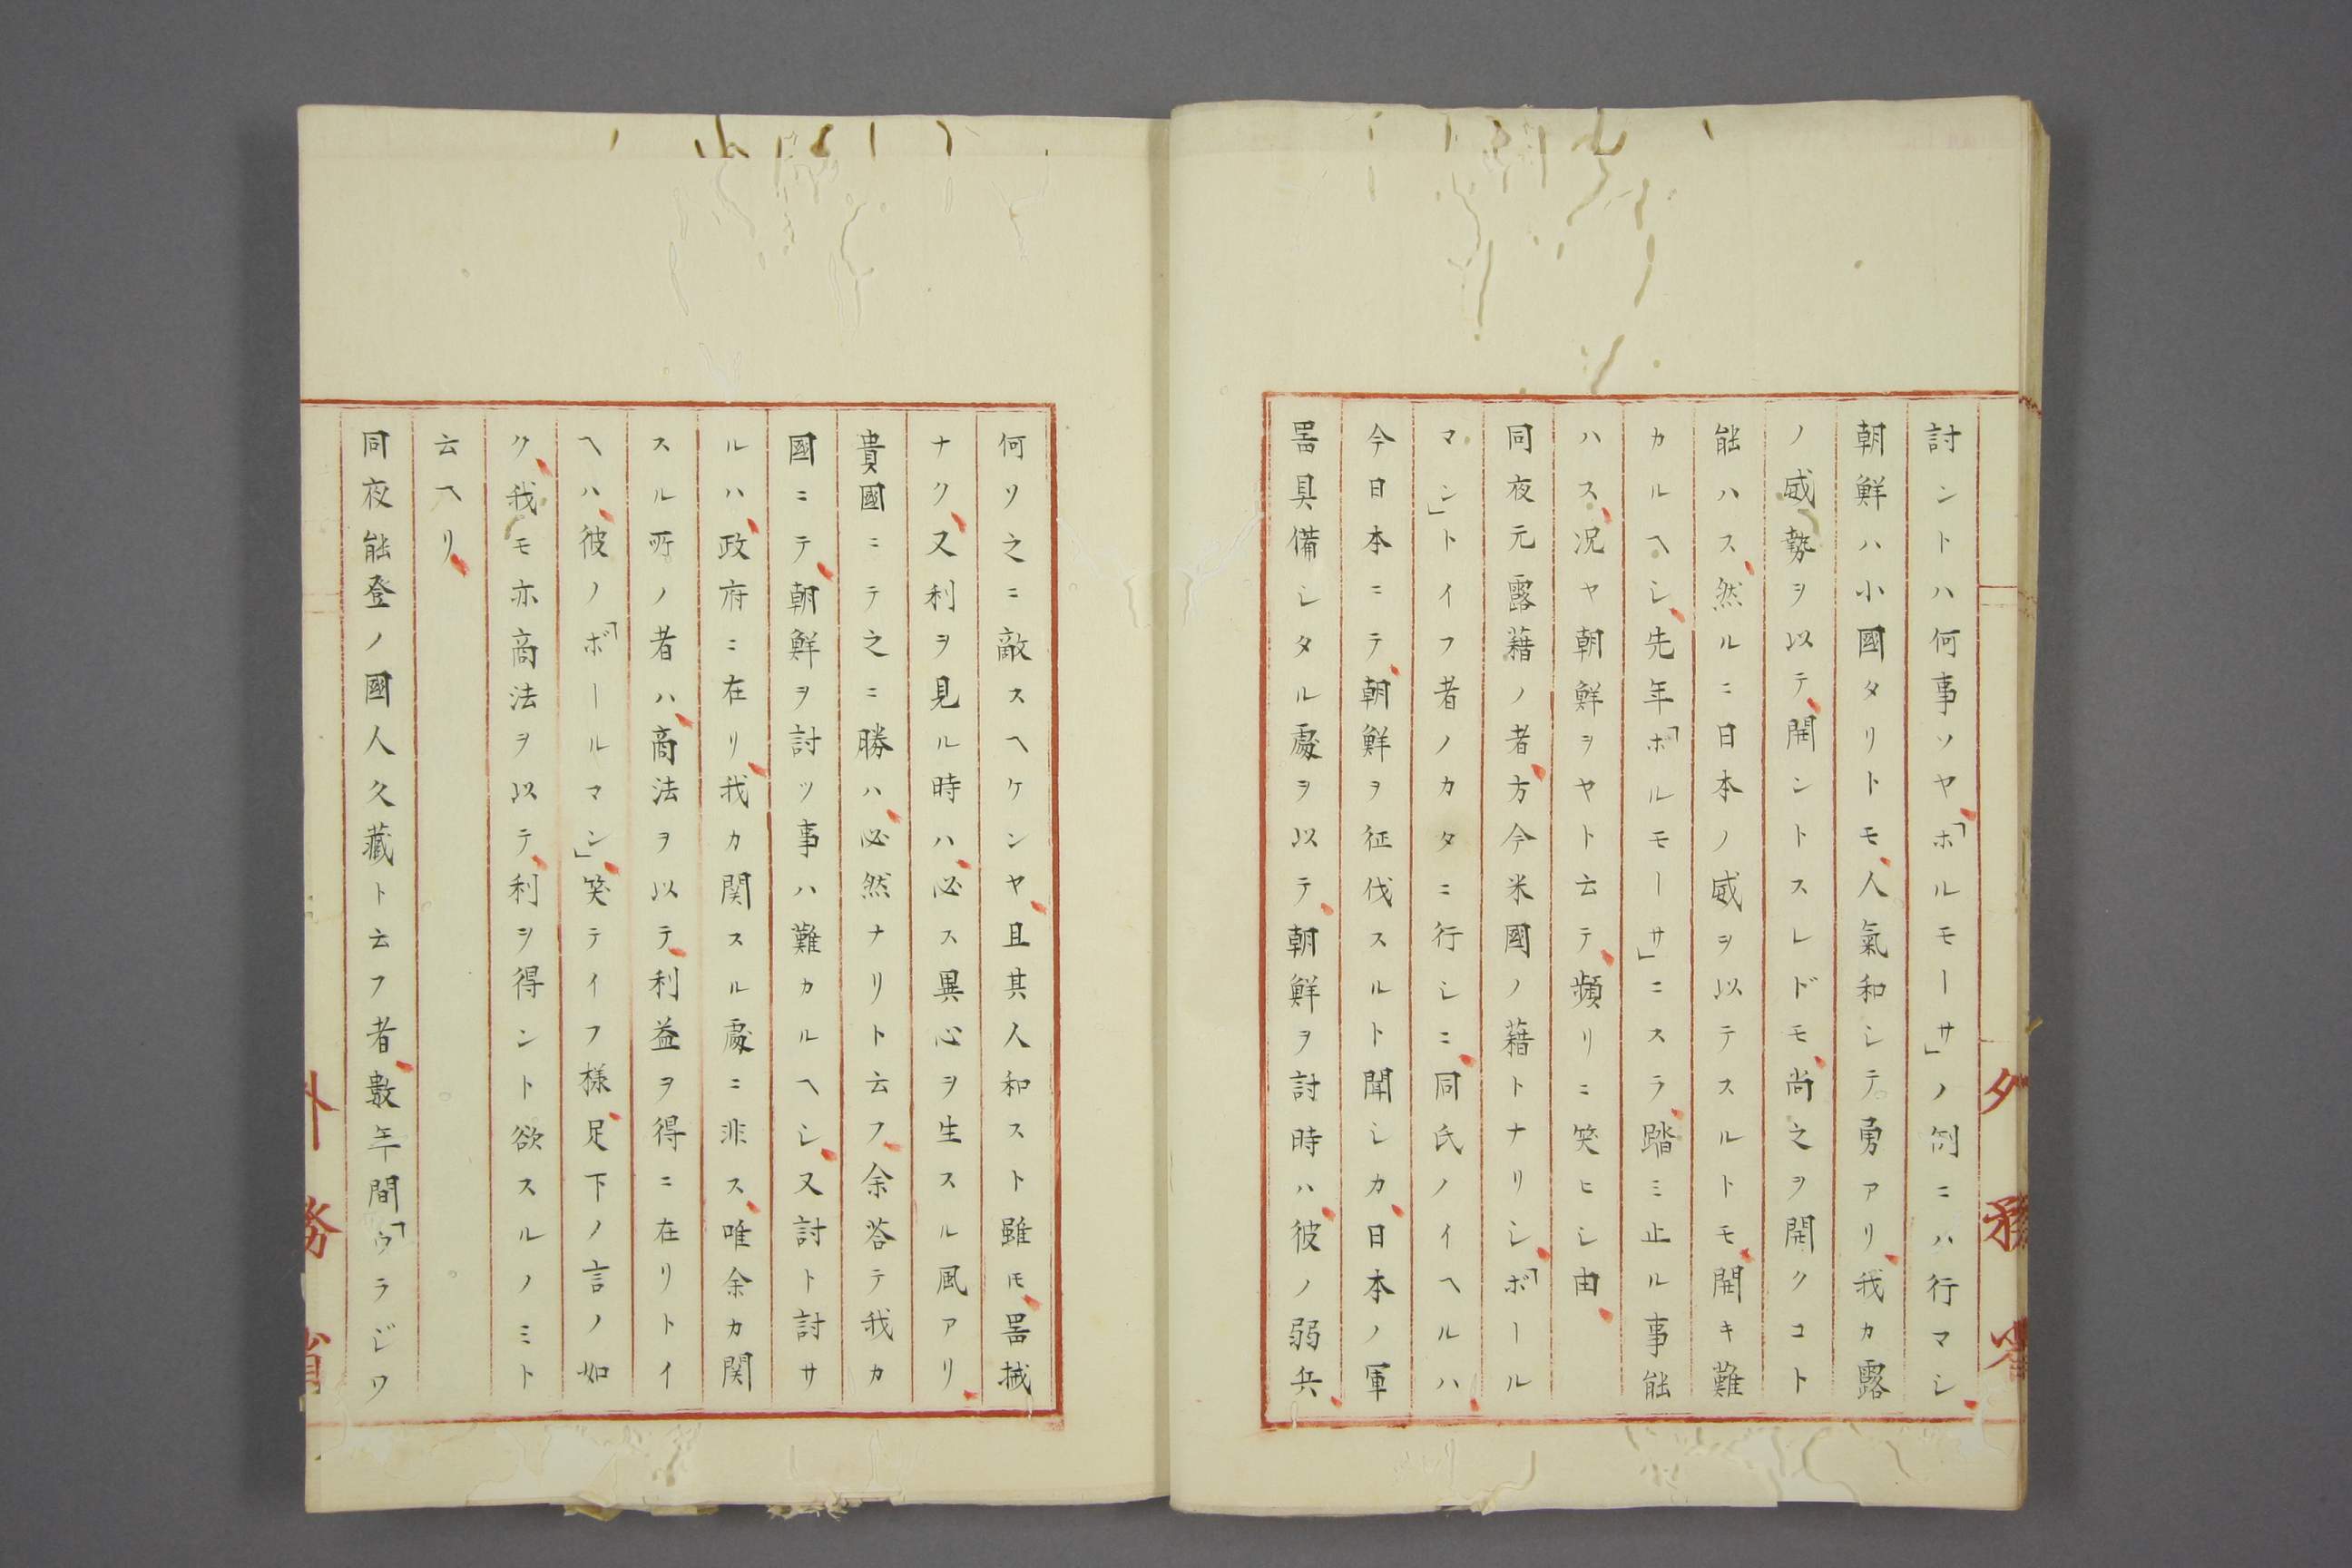 討ントハ何事ソヤ、「ホルモーサ」ノ例ニハ行マシ、
朝鮮ハ小國タリトモ、人氣和シテ勇アリ、我カ露
ノ威勢ヲ以テ、開ントスレドモ、尚之ヲ開クコト
能ハス、然ルニ日本ノ威ヲ以テスルトモ、開キ難
カルヘシ、先年「ホルモーサ」ニスラ、踏ミ止ル事能
ハス、况ヤ朝鮮ヲヤト云テ、頻リニ笑ヒシ由、
同夜元露藉ノ者、方今米國ノ藉トナリシ、「ボール
マン」トイフ者ノカタニ行シニ、同氏ノイヘルハ、
今日本ニテ、朝鮮ヲ征伐スルト聞シカ、日本ノ軍
噐具備シタル處ヲ以テ、朝鮮ヲ討時ハ、彼ノ弱兵、
何ソ之ニ敵スヘケンヤ、且其人和スト雖𪜈、噐械
ナク、又利ヲ見ル時ハ、必ス異心ヲ生スル風アリ、
貴國ニテ之ニ勝ハ、必然ナリト云フ、余答テ我カ
國ニテ、朝鮮ヲ討ツ事ハ難カルヘシ、又討ト討サ
ルハ、政府ニ在リ、我カ関スル處ニ非ス、唯余カ関
スル所ノ者ハ、商法ヲ以テ、利益ヲ得ニ在リトイ
ヘハ、彼ノ「ボールマン」、笑テイフ様、足下ノ言ノ如
ク、我モ亦商法ヲ以テ、利ヲ得ント欲スルノミト
云ヘリ、
同夜能登ノ國人久藏ト云フ者、數年間「ウラジワ
外務省